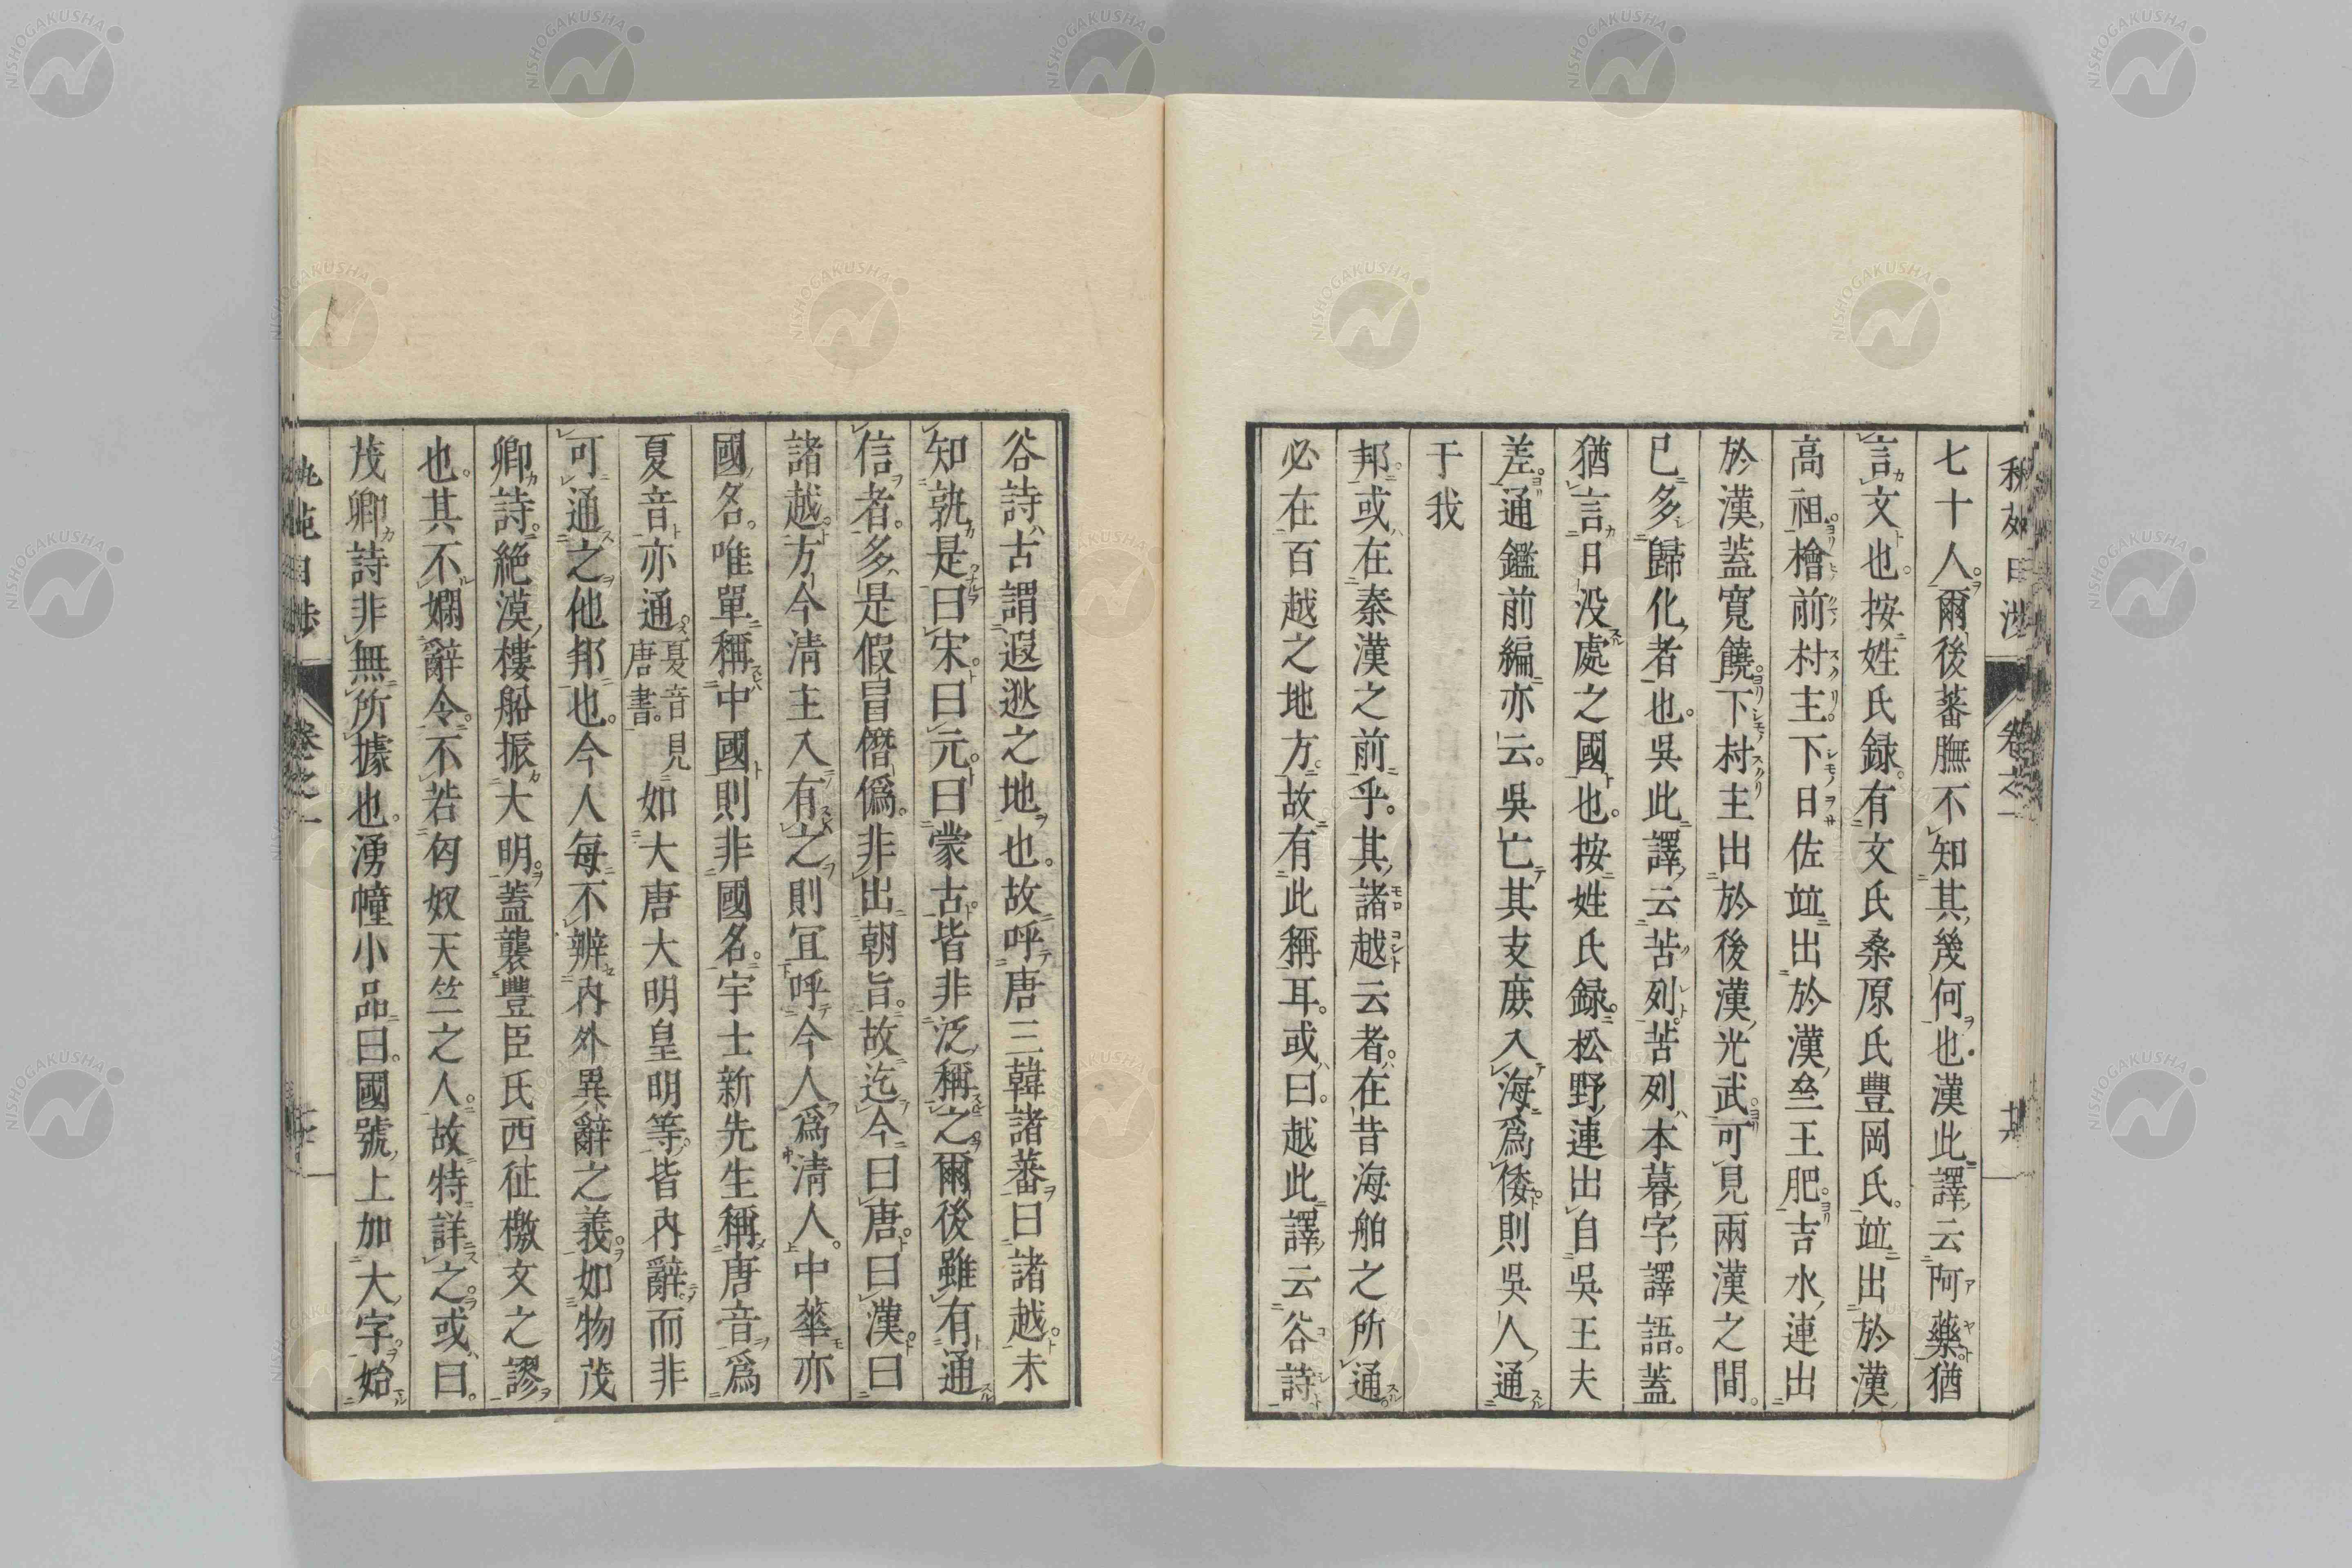 七十人爾後蕃膴不知其幾何也漢此譯云阿藥猶
言文也按姓氏録有文氏桑原氏豊岡氏竝出於漢
高祖檜前村主下日佐竝出於漢叁王肥吉水連出
於漢蓋寬饒下村主出於後漢光武可見兩漢之間
已多歸化者也吳此譯云苦列苦列本暮字譯語蓋
猶言日没處之國也按姓氏録松野連出自吳王夫
差通鑑前編亦云吳亡其支庻入海爲倭則吳人通
于我
邦或在秦漢之前乎其諸越云者在昔海舶之所通
必在百越之地方故有此稱耳或曰越此譯云谷詩
谷詩古謂遐逖之地也故呼唐三韓諸蕃曰諸越未
知孰是曰宋曰元曰蒙古皆非泛稱之爾後雖有通
信者多是假冒僭僞非出朝旨故迄今曰唐曰漢曰
諸越方今清主入有之則冝呼今人爲清人中華亦
國名唯單稱中國則非國名宇士新先生稱唐音爲
夏音亦通夏音見唐書如大唐大明皇明等皆内辭而非
可通之他邦也今人毎不辨内外異辭之義如物茂
卿詩絶漠樓船振大明蓋襲豐臣氏西征檄文之謬
也其不嫺辭令不若匈奴天竺之人故特詳之或曰
茂卿詩非無所據也湧幢小品曰國號上加大字始
卷之一